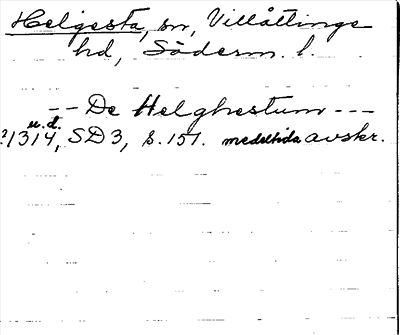 Helgesta, sn, Villåttinge
hd, Söderm. l.
-- De Helghestum ---
u.d.
?1314, SD3, s. 151. medeltida avskr.